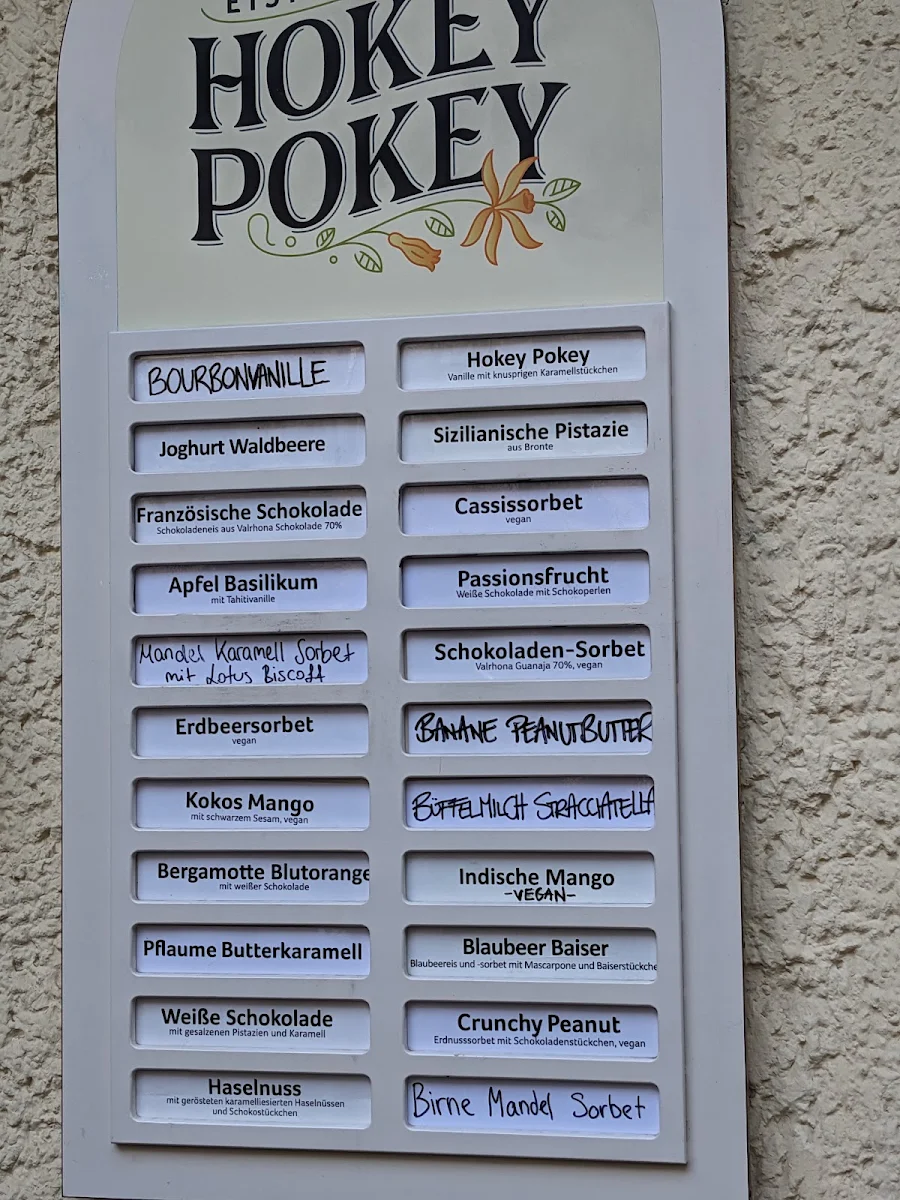 HOKEY
POKEY
BOURBONVANILLE
Joghurt Waldbeere
Französische Schokolade
Schokoladeneis aus Valrhona Schokolade 70%
Apfel Basilikum
mit Tahitivanille
Mandel Karamell Sorbet
mit Lotus Biscoff
Erdbeersorbet
vegan
Kokos Mango
mit schwarzem Sesam, vegan
Bergamotte Blutorange
mit weißer Schokolade
Pflaume Butterkaramell
Weiße Schokolade
mit gesalzenen Pistazien und Karamell
Haselnuss
mit gerösteten karamelliesierten Haselnüssen
und Schokostückchen
Hokey Pokey
Vanille mit knusprigen Karamellstückchen
Sizilianische Pistazie
aus Bronte
Cassissorbet
vegan
Passionsfrucht
Weiße Schokolade mit Schokoperlen
Schokoladen-Sorbet
Valrhona Guanaja 70%, vegan
BANANE PEANUTBUTTER
BÜFFELMILCH STRACCIATELLA
Indische Mango
-VEGAN-
Blaubeer Baiser
Blaubeereis und -sorbet mit Mascarpone und Baiserstückche
Crunchy Peanut
Erdnusssorbet mit Schokoladenstückchen, vegan
Birne Mandel Sorbet